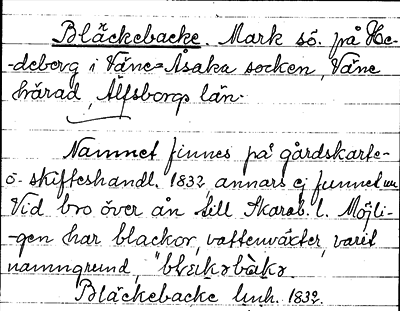 Bläckebacke. Mark sö. på He-
-deborg i Väne-Åsaka socken, Väne
härad, Älfsborgs län.
Namnet finnes på gårdskarte-
o. skifteshandl. 1832, annars ej funnet
Vid bro över ån till Skarab. l. Möjli-
-gen har blackor, vattenväxter, varit
namngrund,
Bläckebacke lmh. 1832.